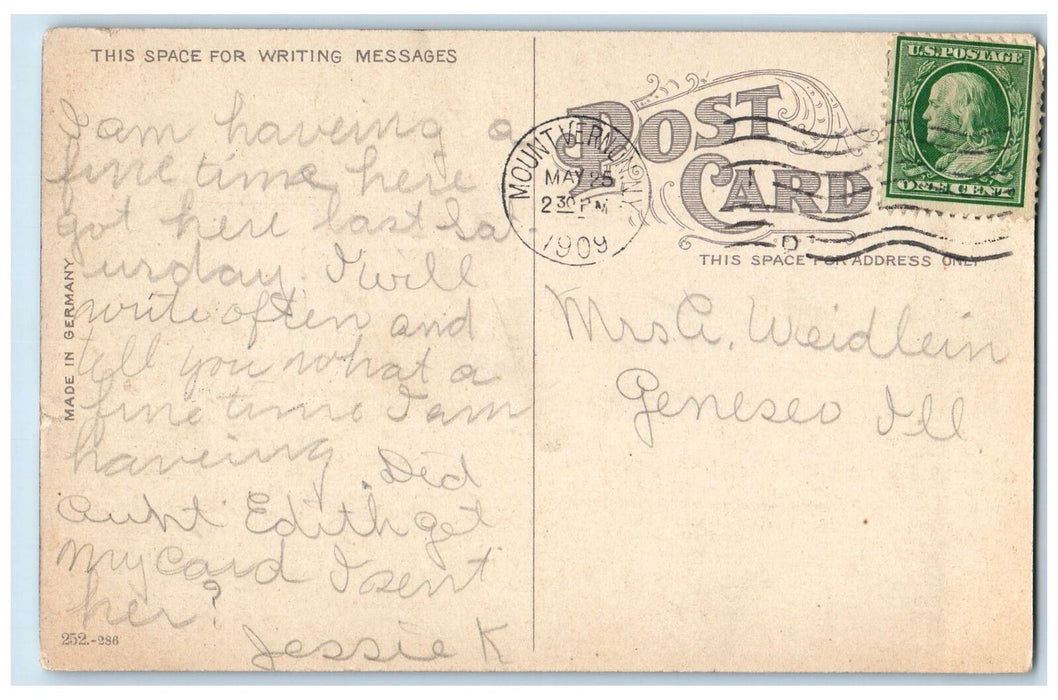 THIS SPACE FOR WRITING MESSAGES
I am haveing a
fine time here
got here last Sa-
urday. I will
write often and
tell you what a
fine time I am
haveing. Did
Aunt Edith get
My Card I sent
her?
Jessie K
MADE IN GERMANY
252.-286
POST
CARD
MOUNT VERNON, N.Y.
MAY 25
2 30 P M
1909
1
D
U.S. POSTAGE
ONE CENT
THIS SPACE FOR ADDRESS ONLY
Mrs A. Weidlein
Geneseo Ill